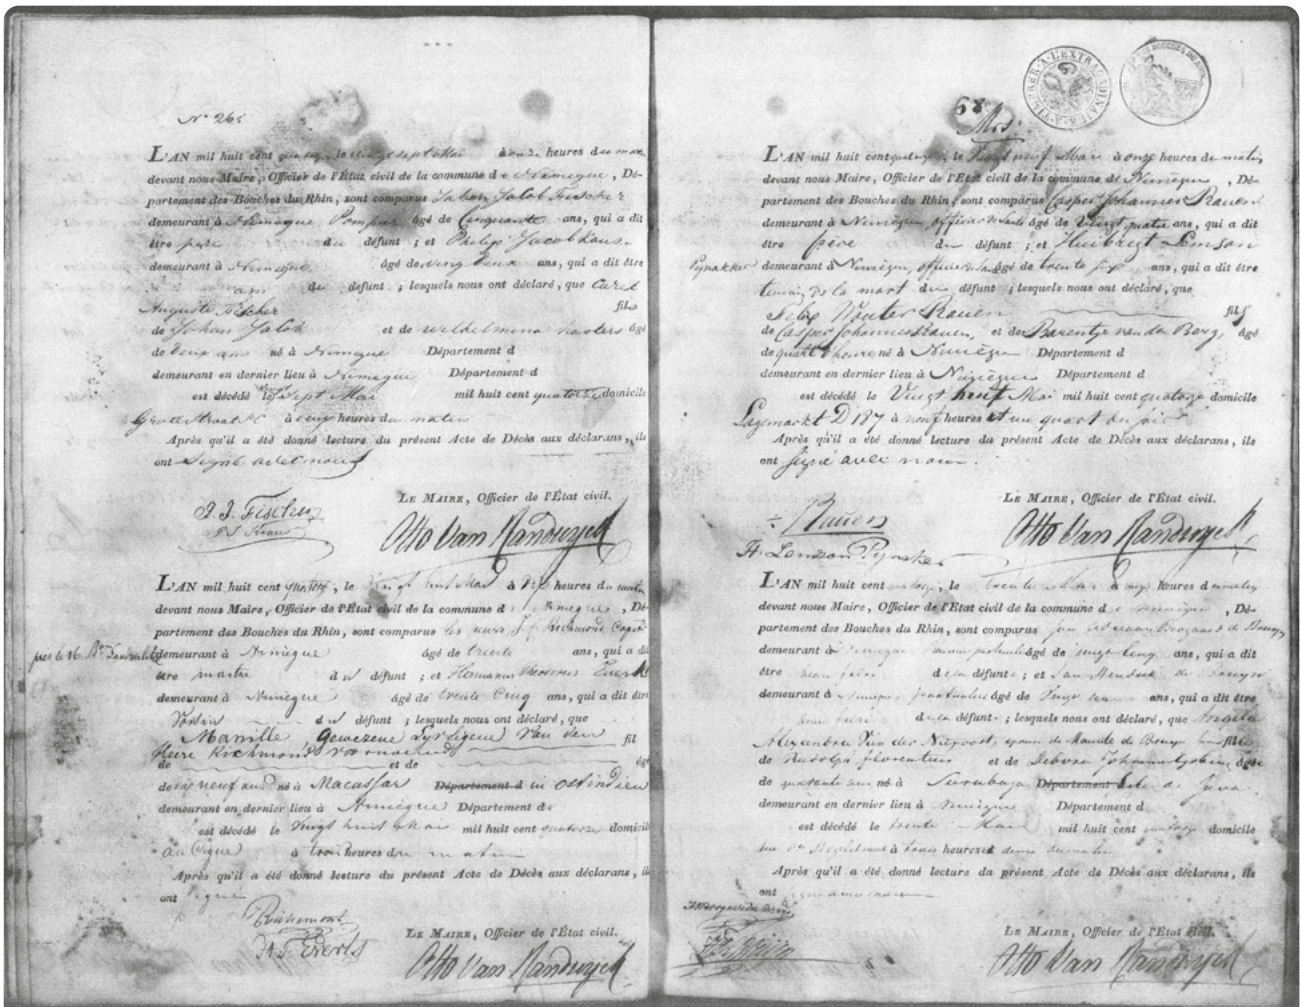 N° 26
L'AN mil huit cent quatorze, le vingt sept Mai à onze heures du mat
devant nous Maire, Officier de l'État civil de la commune de Nimegue, Dé-
partement des Bouches du Rhin, sont comparus Johan Jakob Fischer
demeurant à Nimegue âgé de Cinquante ans, qui a dit
être pere du défunt; et Philip Jacob Kaus
demeurant à Nimegue âgé de vingt deux ans, qui a dit être
ami du défunt; lesquels nous ont déclaré, que Carel
Auguste Fischer fils
de Johan Jakob et de Wilhelmina Kasters âgé
de deux ans né à Nimegue Département d
demeurant en dernier lieu à Nimegue Département d
est décédé le vingt Sept Mai mil huit cent quatorze domicile
Grotestraat à heures du matin
Après qu'il a été donné lecture du présent Acte de Décès aux déclarans, ils
ont Signé avec nous
LE MAIRE, Officier de l'État civil.
J. J. Fischer
Otto Van Randwyck
L'AN mil huit cent quatorze, le vingt huit Mai à dix heures du matin
devant nous Maire, Officier de l'État civil de la commune de Nimegue, Dé-
partement des Bouches du Rhin, sont comparus les sieurs Richmond
demeurant à Nimegue âgé de trente ans, qui a dit
être maitre du défunt; et Hermanus Everts
demeurant à Nimegue âgé de trente Cinq ans, qui a dit être
Voisin du défunt; lesquels nous ont déclaré, que
Manille Gewezene Lyfeigene van den
Heere Richmond voornoemd fil
de et de âgé
de dix neuf ans né à Macassar Département d in Ostindien
demeurant en dernier lieu à Nimegue Département de
est décédé le Vingt huit Mai mil huit cent quatorze domicile
à trois heures du matin
Après qu'il a été donné lecture du présent Acte de Décès aux déclarans, ils
ont signé
Richemont
H. T. Everts
LE MAIRE, Officier de l'État civil.
Otto Van Randwyck
68
TIMBRE À L'EXTRAORDINAIRE
BOUCHES DU RHIN
L'AN mil huit cent quatorze, le Vingt neuf Mai à onze heures du matin,
devant nous Maire, Officier de l'État civil de la commune de Nimègue, Dé-
partement des Bouches du Rhin, sont comparus Casper Johannes Rauen
demeurant à Nimègue, officier de Santé âgé de Vingt quatre ans, qui a dit
être père du défunt; et Huibregt Lenson
Pynakker demeurant à Nimègue, officier de Santé âgé de trente six ans, qui a dit être
temoin de la mort du défunt; lesquels nous ont déclaré, que
Felix Wouter Rauen fils
de Casper Johannes Rauen, et de Barentje van den Berg, âgé
de quart d'heure né à Nimègue Département d
demeurant en dernier lieu à Nimègue Département d
est décédé le Vingt neuf Mai mil huit cent quatorze domicile
Lagemarkt D 187 à neuf heures et un quart du soir
Après qu'il a été donné lecture du présent Acte de Décès aux déclarans, ils
ont signé avec nous.
LE MAIRE, Officier de l'État civil.
Rauen
H. Lenson Pynaker
Otto Van Randwyck
L'AN mil huit cent quatorze, le trente Mai à heures du matin
devant nous Maire, Officier de l'État civil de la commune de Nimegue, Dé-
partement des Bouches du Rhin, sont comparus Jan Adriaan de Bruyn
demeurant à Nimegue âgé de vingt cinq ans, qui a dit
être beau frère de la défunte; et Jan Hendrik de Bruyn
demeurant à Nimegue âgé de Vingt ans, qui a dit être
beau frère de la défunte; lesquels nous ont déclaré, que Angela
Alexandra Van der Niepoort, de Bruyn fille
de Rudolph Florentius et de Debora Johanna âgée
de quarante ans né à Surabaya Département d Isle de Java
demeurant en dernier lieu à Nimegue Département d
est décédé le trente Mai mil huit cent quatorze domicile
à heures et demi du matin
Après qu'il a été donné lecture du présent Acte de Décès aux déclarans, ils
ont signé avec nous
LE MAIRE, Officier de l'État civil.
Otto Van Randwyck